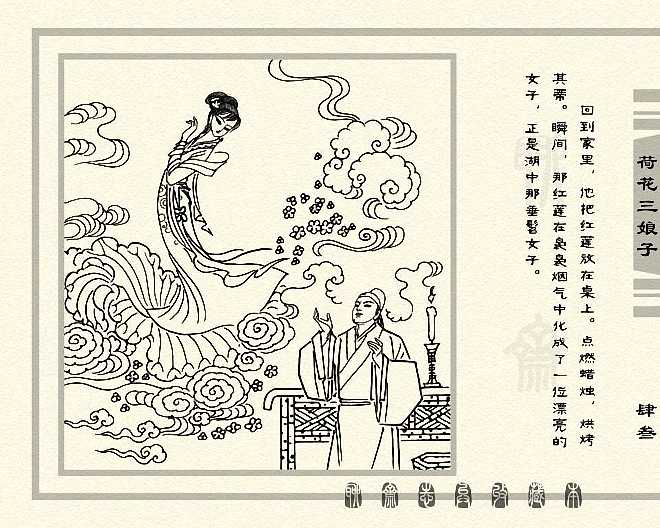 回到家里，他把红莲放在桌上。点燃蜡烛，烘烤
其蒂。瞬间，那红莲在袅袅烟气中化成了一位漂亮的
女子，正是湖中那垂髫女子。
荷花三娘子
肆叁
聊斋志异收藏本